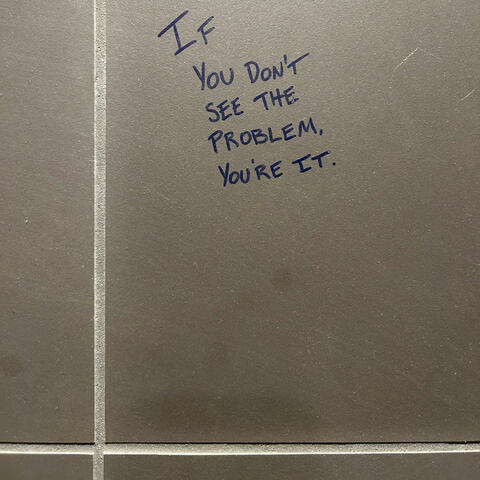 IF
YOU DON'T
SEE THE
PROBLEM,
YOU'RE IT.